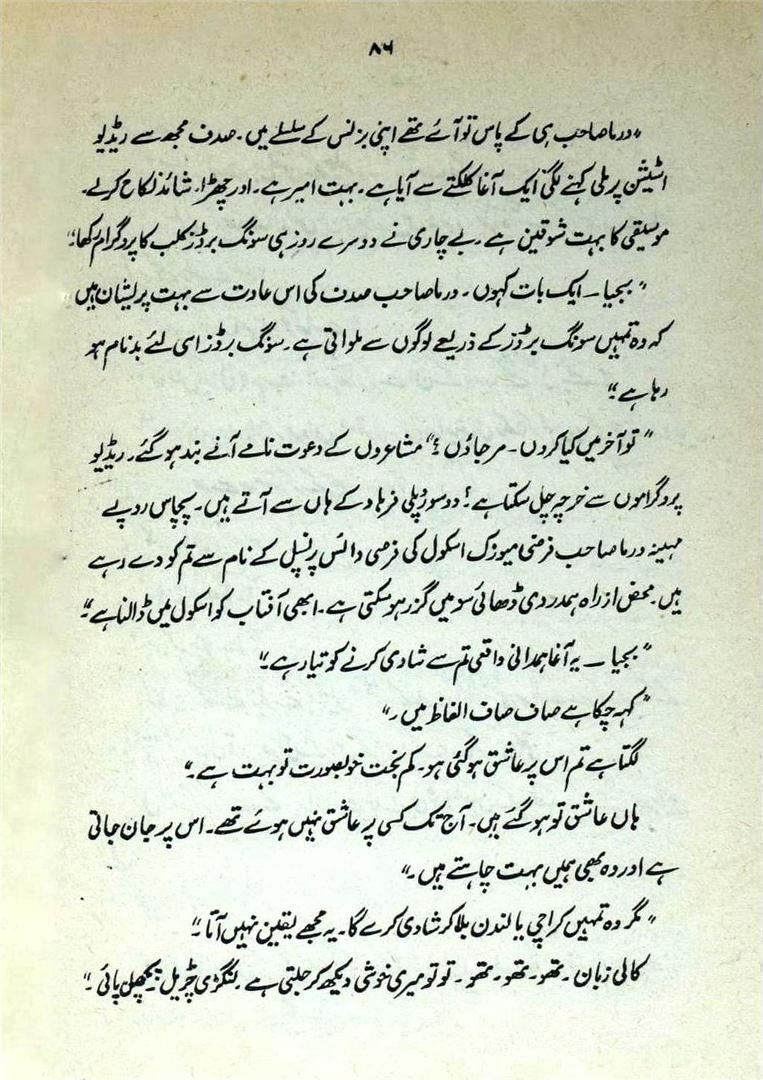 ۸۶
"ورما صاحب ہی کے پاس تو آئے تھے اپنی بزنس کے سلسلے میں۔ صدف مجھ سے ریڈیو
اسٹیشن پر ملی کہنے لگی ایک آغا کلکتے سے آیا ہے۔ بہت امیر ہے۔ اور چھڑا۔ شائد نکاح کر لے۔
موسیقی کا بہت شوقین ہے۔ بے چاری نے دوسرے روز ہی سونگ برڈز کلب کا پروگرام رکھا؛"
"بجیا — ایک بات کہوں۔ ورما صاحب صدف کی اس عادت سے بہت پریشان ہیں
کہ وہ تمہیں سونگ برڈز کے ذریعے لوگوں سے ملواتی ہے۔ سونگ برڈز اسی لئے بدنام ہو
رہا ہے۔"
"تو آخر میں کیا کروں۔ مر جاؤں؟" مشاعروں کے دعوت نامے آنے بند ہو گئے۔ ریڈیو
پروگراموں سے خرچہ چل سکتا ہے؟ دو سو رُپلی فرہاد کے ہاں سے آتے ہیں۔ پچاس روپے
مہینہ ورما صاحب فرضی میوزک اسکول کی فرضی وائس پرنسپل کے نام سے تم کو دے رہے
ہیں۔ محض از راہ ہمدردی ڈھائی سو میں گزر ہو سکتی ہے۔ ابھی آفتاب کو اسکول میں ڈالنا ہے۔"
"بجیا — یہ آغا ہمدانی واقعی تم سے شادی کرنے کو تیار ہے۔"
"کہہ چکا ہے صاف صاف الفاظ میں۔"
لگتا ہے تم اس پر عاشق ہو گئی ہو۔ کم بخت خوبصورت تو بہت ہے۔"
ہاں عاشق تو ہو گئے ہیں۔ آج تک کسی پر عاشق نہیں ہوئے تھے۔ اس پر جان جاتی
ہے اور وہ بھی ہمیں بہت چاہتے ہیں۔"
"مگر وہ تمہیں کراچی یا لندن بلا کر شادی کرے گا۔ یہ مجھے یقین نہیں آتا۔"
کالی زبان۔ تھو۔ تھو۔ تھو۔ تو تو میری خوشی دیکھ کر جلتی ہے۔ لنگڑی چڑیل۔ پچھل پائی۔"